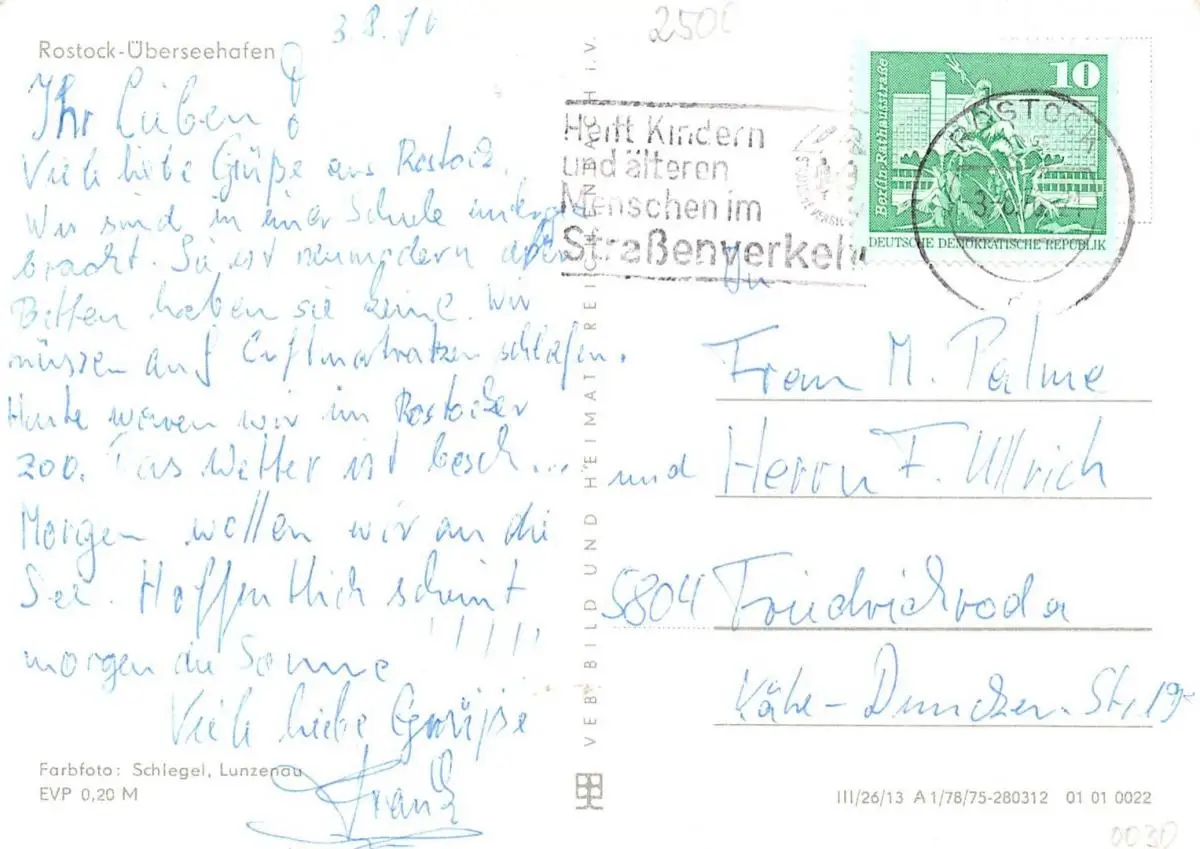 3.8.76
2500
Rostock-Überseehafen
Ihr Lieben!
Viele liebe Grüße aus Rostock.
Wir sind in einer Schule unterge
bracht. Sie ist neumodern aber
Betten haben sie keine. Wir
müssen auf Luftmatratzen schlafen.
Heute waren wir im Rostocker
Zoo. Das Wetter ist besch...
Morgen wollen wir an die
See. Hoffentlich scheint
morgen die Sonne !!!!!!
Viele liebe Grüße
Frank
Farbfoto: Schlegel, Lunzenau
EVP 0,20 M
VEB BILD UND HEIMAT REICHENBACH i.V.
Helft Kindern
und älteren
Menschen im
Straßenverkehr
10
Berlin · Rathausstraße
DEUTSCHE DEMOKRATISCHE REPUBLIK
ROSTOCK
An
Frau M. Palme
und Herrn F. Ullrich
5804 Friedrichroda
Käthe-Duncker-Str. 19
III/26/13 A 1/78/75-280312 01 01 0022
0030